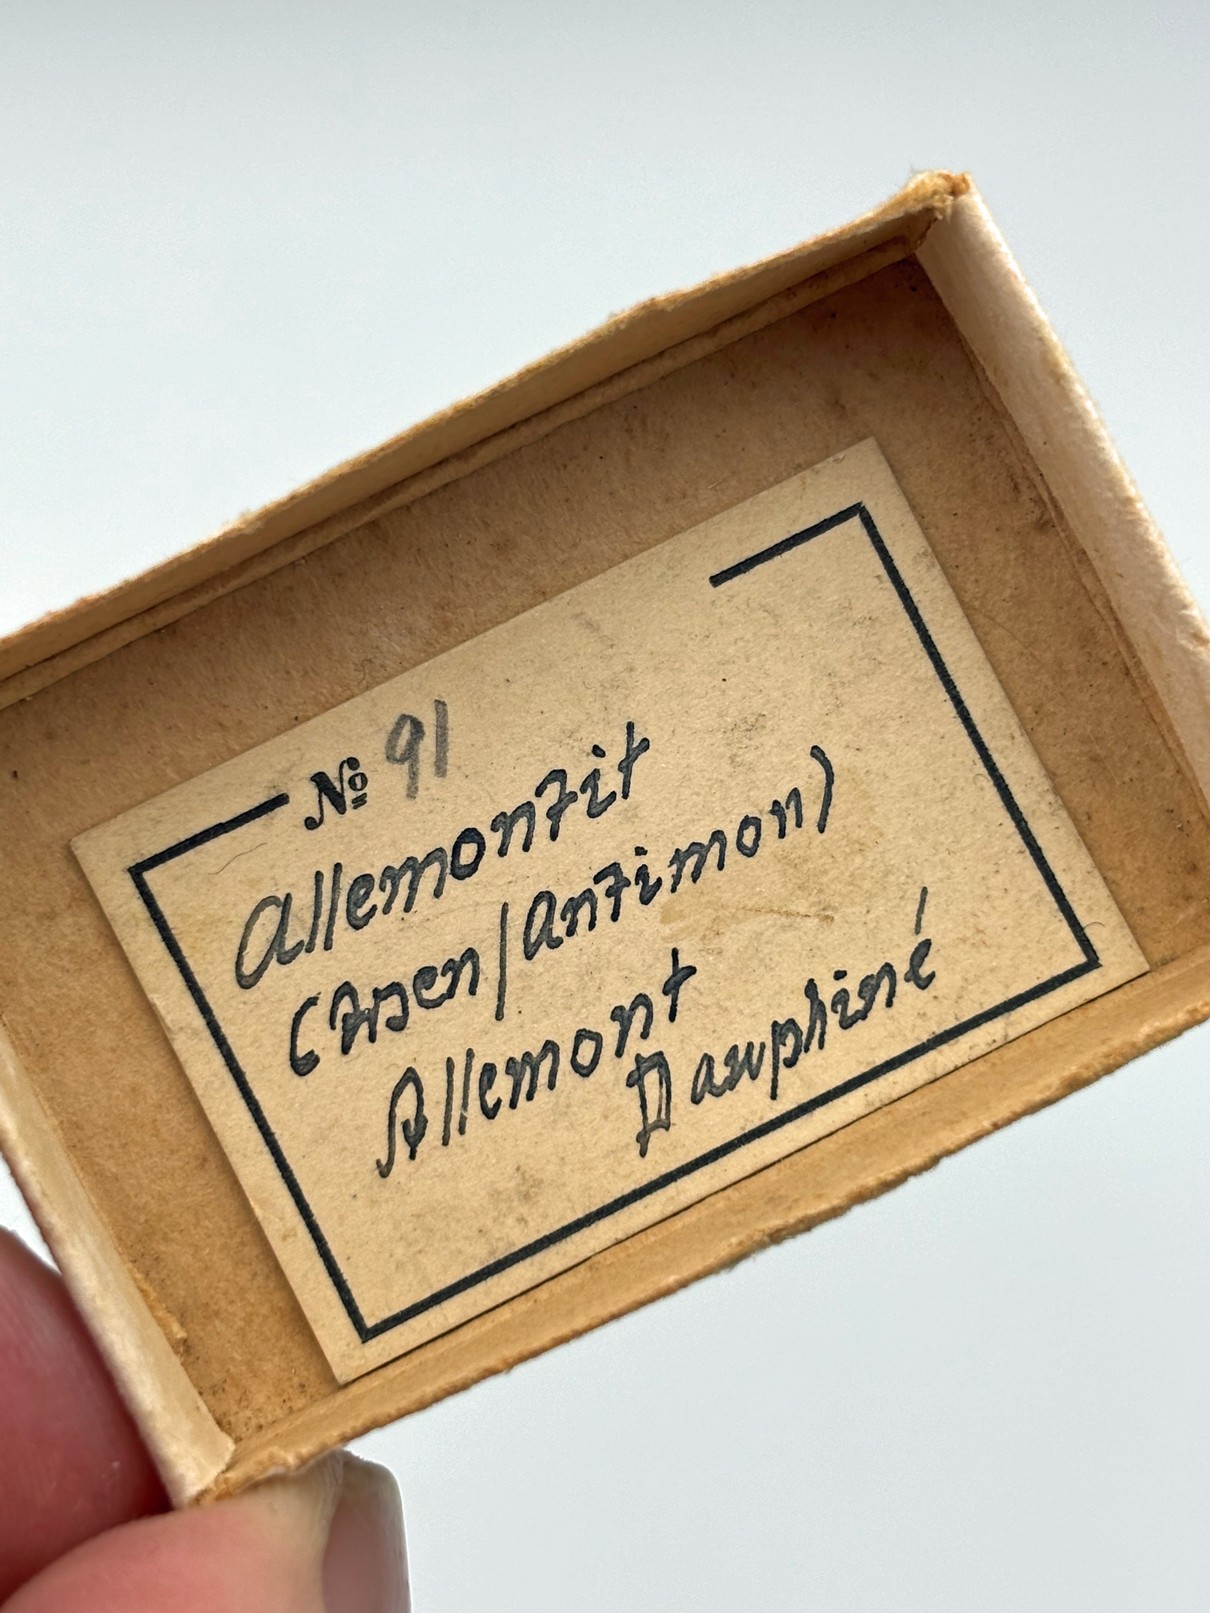 № 91
Allemontit
(Arsen/Antimon)
Allemont
Dauphiné